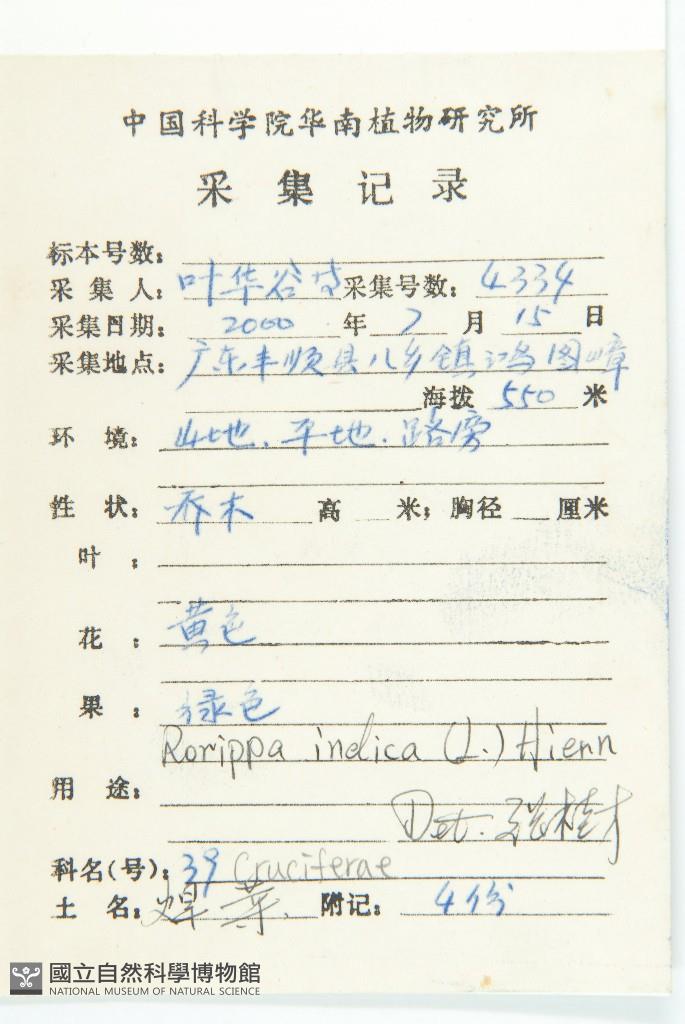 中国科学院华南植物研究所
采集记录
标本号数:
采集人: 叶华谷等 采集号数: 4334
采集日期: 2000 年 7 月 15 日
采集地点: 广东丰顺县八乡镇鸿图嶂
海拨 550 米
环境: 山地.平地.路旁
性状: 乔木 高 米; 胸径 厘米
叶:
花: 黄色
果: 绿色
Rorippa indica (L.) Hienn
用途:
Det. 张桂才
科名(号): 39 Cruciferae
土名: 焊菜. 附记: 4份
國立自然科學博物館
NATIONAL MUSEUM OF NATURAL SCIENCE